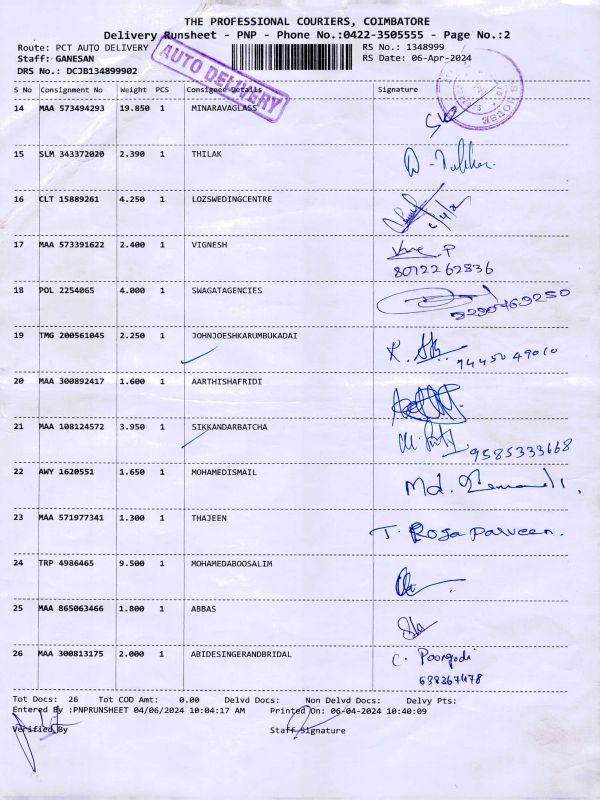 THE PROFESSIONAL COURIERS, COIMBATORE
Delivery Runsheet - PNP - Phone No.:0422-3505555 - Page No.:2
Route: PCT AUTO DELIVERY RS No.: 1348999
Staff: GANESAN RS Date: 06-Apr-2024
DRS No.: DCJB134899902
AUTO DELIVERY
HOUSE
S No Consignment No Weight PCS Consignee Details Signature
14 MAA 573494293 19.850 1 MINARAVAGLASS
15 SLM 343372020 2.390 1 THILAK
16 CLT 15889261 4.250 1 LOZSWEDINGCENTRE
17 MAA 573391622 2.400 1 VIGNESH
8072262836
18 POL 2254065 4.000 1 SWAGATAGENCIES
19 TMG 200561045 2.250 1 JOHNJOESHKARUMBUKADAI
20 MAA 300892417 1.600 1 AARTHISHAFRIDI
21 MAA 108124572 3.950 1 SIKKANDARBATCHA
9585333668
22 AWY 1620551 1.650 1 MOHAMEDISMAIL
Md.
23 MAA 571977341 1.300 1 THAJEEN T. Roja parveen.
24 TRP 4986465 9.500 1 MOHAMEDABOOSALIM
25 MAA 865063466 1.800 1 ABBAS
26 MAA 300813175 2.000 1 ABIDESINGERANDBRIDAL C. Poongodi
Tot Docs: 26 Tot COD Amt: 0.00 Delvd Docs: Non Delvd Docs: Delvy Pts:
Entered By :PNPRUNSHEET 04/06/2024 10:04:17 AM Printed On: 06-04-2024 10:40:09
Verified By Staff Signature